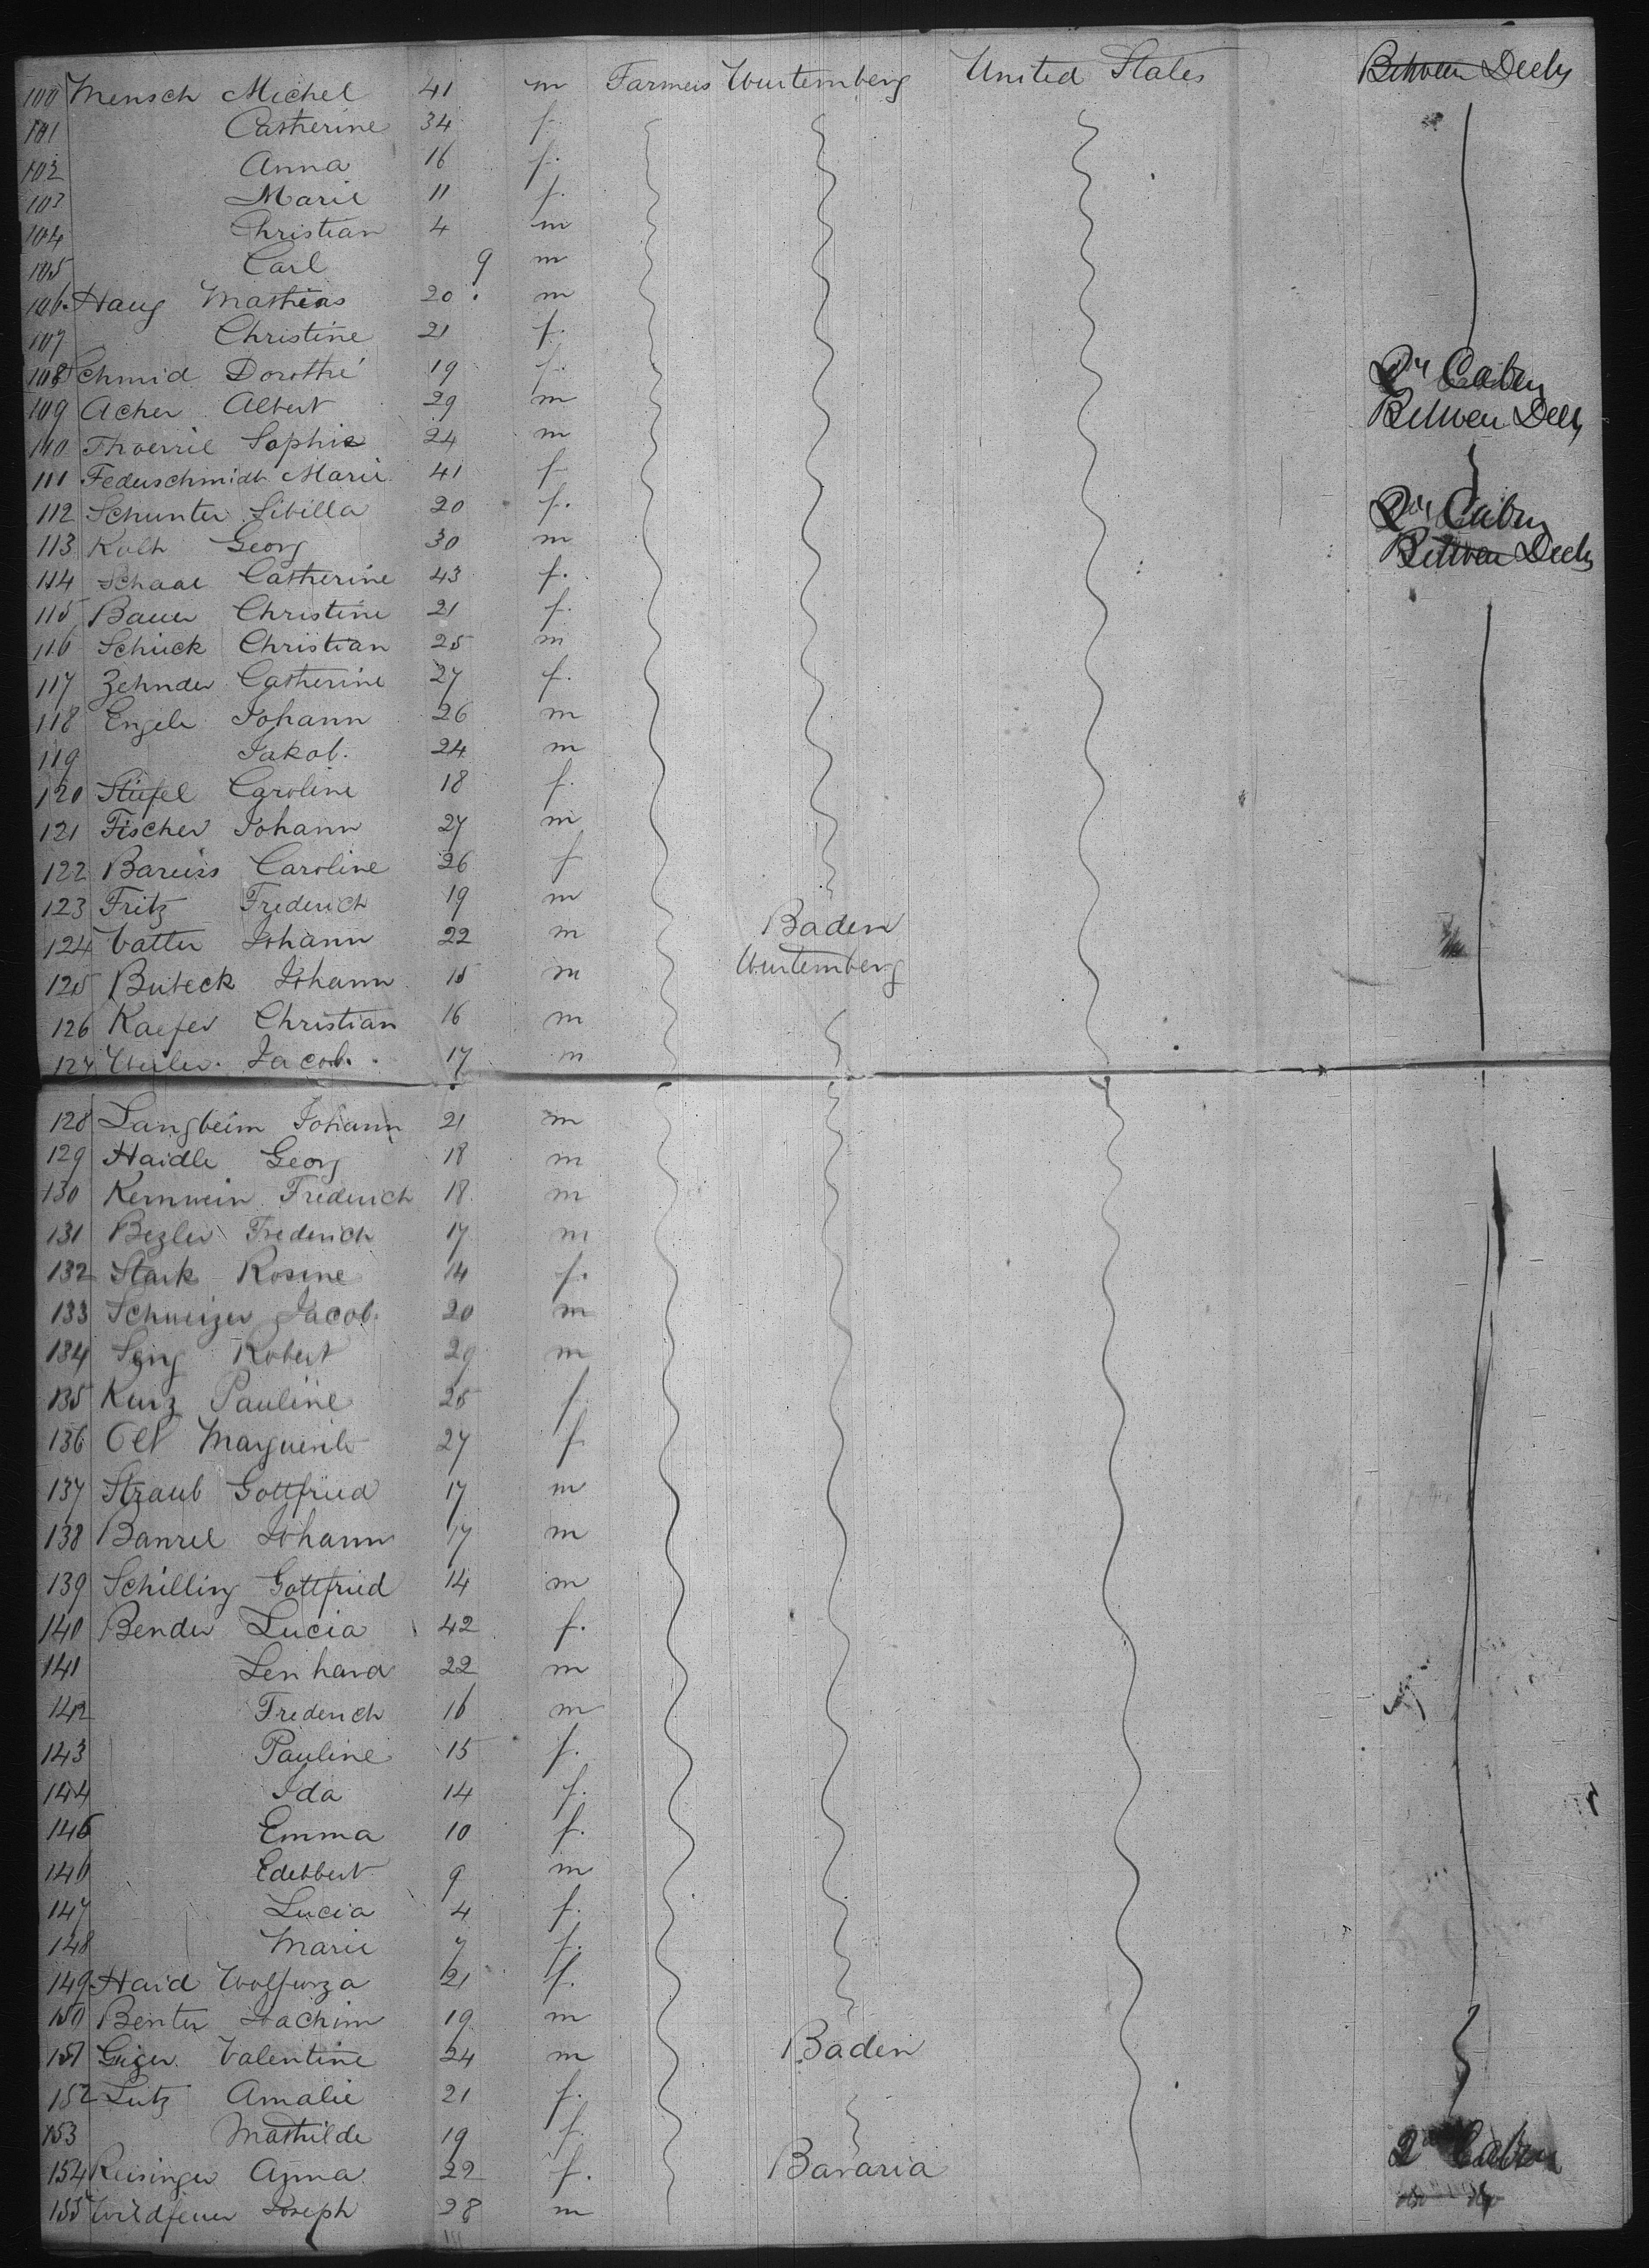 100 Mensch Michel 41 m Farmers Wurtemberg United States Between Decks
101 Catherine 34 f.
102 Anna 16 f.
103 Marie 11 f.
104 Christian 4 m
105 Carl 9 m
106 Haug Mathias 20 m
107 Christine 21 f.
108 Schmid Dorothé 19 f. 2nd Cabin
109 Acher Albert 29 m Between Decks
110 Sophie 24 m
111 Federschmidt Marie 41 f
112 Schunter Sibilla 20 f. 2nd Cabin
113 Kolh Georg 30 m Between Decks
114 Schaal Catherine 43 f.
115 Bauer Christine 21 f.
116 Schück Christian 25 m
117 Zehnder Catherine 27 f.
118 Engele Johann 26 m
119 Jakob. 24 m
120 Stiefel Caroline 18 f.
121 Fischer Johann 27 m
122 Bareiss Caroline 26 f
123 Fritz Frederich 19 m
124 Vatter Johann 22 m Baden
125 Buteck Johann 15 m Wurtemberg
126 Kaefer Christian 16 m
127 Weiler. Jacob. 17 m
128 Langbein Johann 21 m
129 Haidle Georg 18 m
130 Kernwein Frederich 18 m
131 Bezler Frederich 17 m
132 Stark Rosine 14 f.
133 Schweizer Jacob. 20 m
134 Robert 29 m
135 Kurz Pauline 25 f
136 Ott Marguerite 27 f
137 Straub Gottfried 17 m
138 Banzel Johann 17 m
139 Schilling Gottfried 14 m
140 Bender Lucia 42 f.
141 Lenhard 22 m
142 Frederich 16 m
143 Pauline 15 f.
144 Ida 14 f.
145 Emma 10 f.
146 Edelbert 9 m
147 Lucia 4 f.
148 Marie 7 f.
149 Haid 21 f.
150 Benter Joachim 19 m
151 Geiger Valentine 24 m Baden
152 Lutz Amalie 21 f.
153 Mathilde 19 f. 2nd Cabin
154 Reisinger Anna 22 f. Bavaria
155 Wildfeuer Joseph 28 m